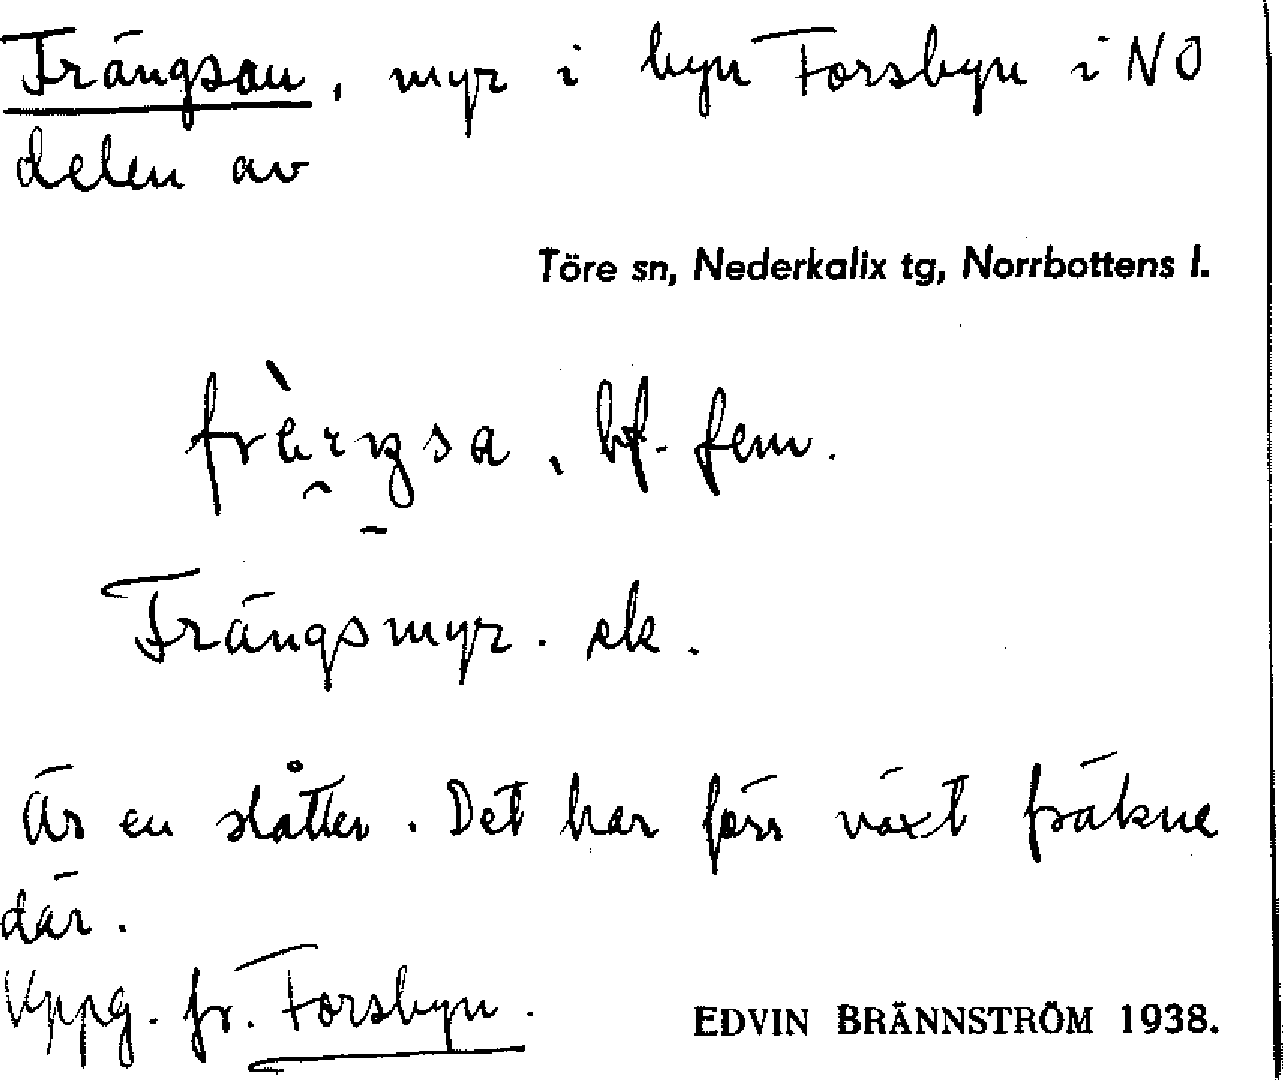 Frängsan, myr i byn Forsbyn i NO
delen av
Töre sn, Nederkalix tg, Norrbottens l.
bf. fem.
Frängsmyr. ek.
Är en slåtter. Det har förr växt fräkne
där.
Uppg. fr. Forsbyn.
EDVIN BRÄNNSTRÖM 1938.